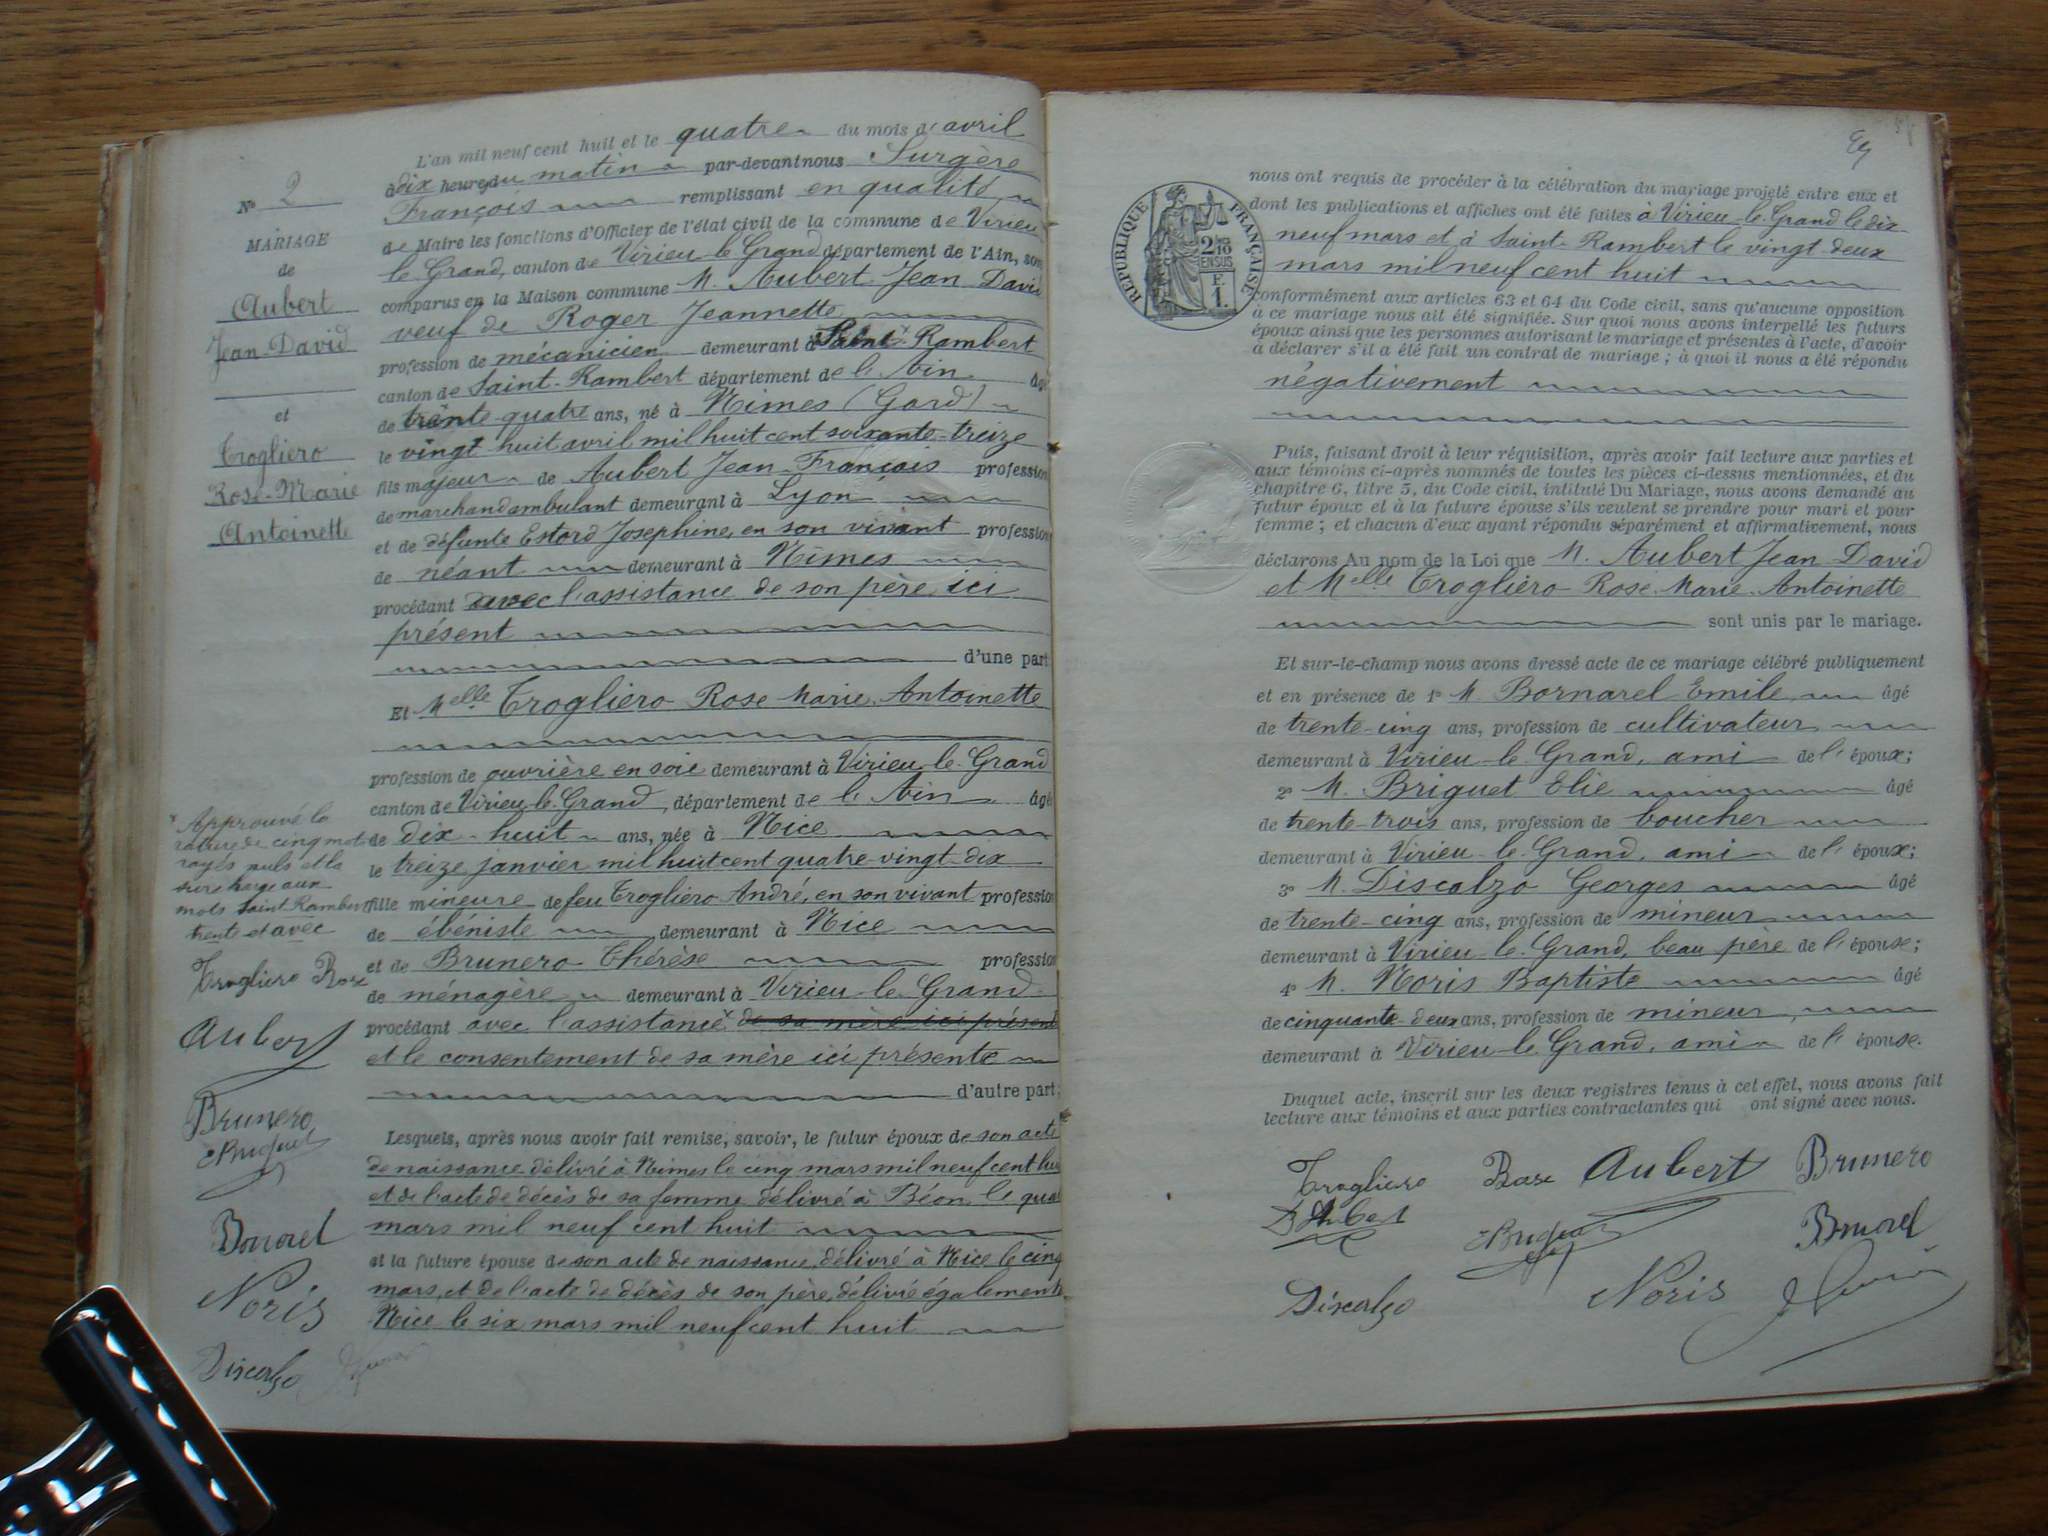 L'an mil neuf cent huit et le quatre du mois d'avril
à dix heures du matin par-devant nous Surgère
François remplissant en qualité
de Maire les fonctions d'Officier de l'état civil de la commune de Virieu
le Grand, canton de Virieu-le-Grand département de l'Ain, son
comparus en la Maison commune M. Aubert Jean David
veuf de Roger Jeannette
profession de mécanicien demeurant à Saint x Rambert
canton de Saint-Rambert département de l'Ain âgé
de trente-quatre ans, né à Nîmes (Gard)
le vingt huit avril mil huit cent soixante-treize
fils majeur de Aubert Jean-François profession
de marchand ambulant demeurant à Lyon
et de défunte Estord Josephine, en son vivant profession
de néant demeurant à Nîmes
procédant avec l'assistance de son père ici
présent
d'une part
Et Melle Trogliero Rose Marie Antoinette
profession de ouvrière en soie demeurant à Virieu-le-Grand
canton de Virieu-le-Grand, département de l'Ain âgé
de dix-huit ans, née à Nice
le treize janvier mil huit cent quatre-vingt-dix
fille mineure de feu Trogliero André, en son vivant profession
de ébéniste demeurant à Nice
et de Brunero Thérèse profession
de ménagère demeurant à Virieu-le-Grand
procédant avec l'assistance x de sa mère ici présent
et le consentement de sa mère ici présente
d'autre part;
Lesquels, après nous avoir fait remise, savoir, le futur époux de son acte
de naissance délivré à Nîmes le cinq mars mil neuf cent hui
et de l'acte de décès de sa femme délivré à Béon le qua
mars mil neuf cent huit
et la future épouse de son acte de naissance, délivré à Nice le cinq
mars, et de l'acte de décès de son père, délivré également
Nice le six mars mil neuf cent huit
No 2
MARIAGE
de
Aubert
Jean-David
et
Trogliero
Rose-Marie
Antoinette
x Approuvé la
rature de cinq mots
rayés nuls et la
surcharge aux
mots Saint Rambert
trente et avec
Trogliero Rose
Aubert
Brunero
EBriquet
Bornarel
Noris
Discalzo
nous ont requis de procéder à la célébration du mariage projeté entre eux et
dont les publications et affiches ont été faites à Virieu-le-Grand le dix-
neuf mars et à Saint-Rambert le vingt-deux
mars mil neuf cent huit
RÉPUBLIQUE FRANÇAISE
2 /10
EN SUS
F.
1.
conformément aux articles 63 et 64 du Code civil, sans qu'aucune opposition
à ce mariage nous ait été signifiée. Sur quoi nous avons interpellé les futurs
époux ainsi que les personnes autorisant le mariage et présentes à l'acte, d'avoir
à déclarer s'il a été fait un contrat de mariage; à quoi il nous a été répondu
négativement
Puis, faisant droit à leur réquisition, après avoir fait lecture aux parties et
aux témoins ci-après nommés de toutes les pièces ci-dessus mentionnées, et du
chapitre 6, titre 5, du Code civil, intitulé Du Mariage, nous avons demandé au
futur époux et à la future épouse s'ils veulent se prendre pour mari et pour
femme; et chacun d'eux ayant répondu séparément et affirmativement, nous
déclarons Au nom de la Loi que M. Aubert Jean David
et Melle Trogliero Rose Marie Antoinette
sont unis par le mariage.
Et sur-le-champ nous avons dressé acte de ce mariage célébré publiquement
et en présence de 1° M. Bornarel Emile âgé
de trente-cinq ans, profession de cultivateur
demeurant à Virieu-le-Grand, ami de l' époux;
2° M. Briquet Elie âgé
de trente-trois ans, profession de boucher
demeurant à Virieu-le-Grand, ami de l' époux;
3° M. Discalzo Georges âgé
de trente-cinq ans, profession de mineur
demeurant à Virieu-le-Grand, beau père de l' épouse;
4° M. Noris Baptiste âgé
de cinquante-deux ans, profession de mineur
demeurant à Virieu-le-Grand, ami de l' épouse.
Duquel acte, inscrit sur les deux registres tenus à cet effet, nous avons fait
lecture aux témoins et aux parties contractantes qui ont signé avec nous.
Trogliero Rose Aubert Brunero
Aubert EBriquet Bornarel
Discalzo Noris